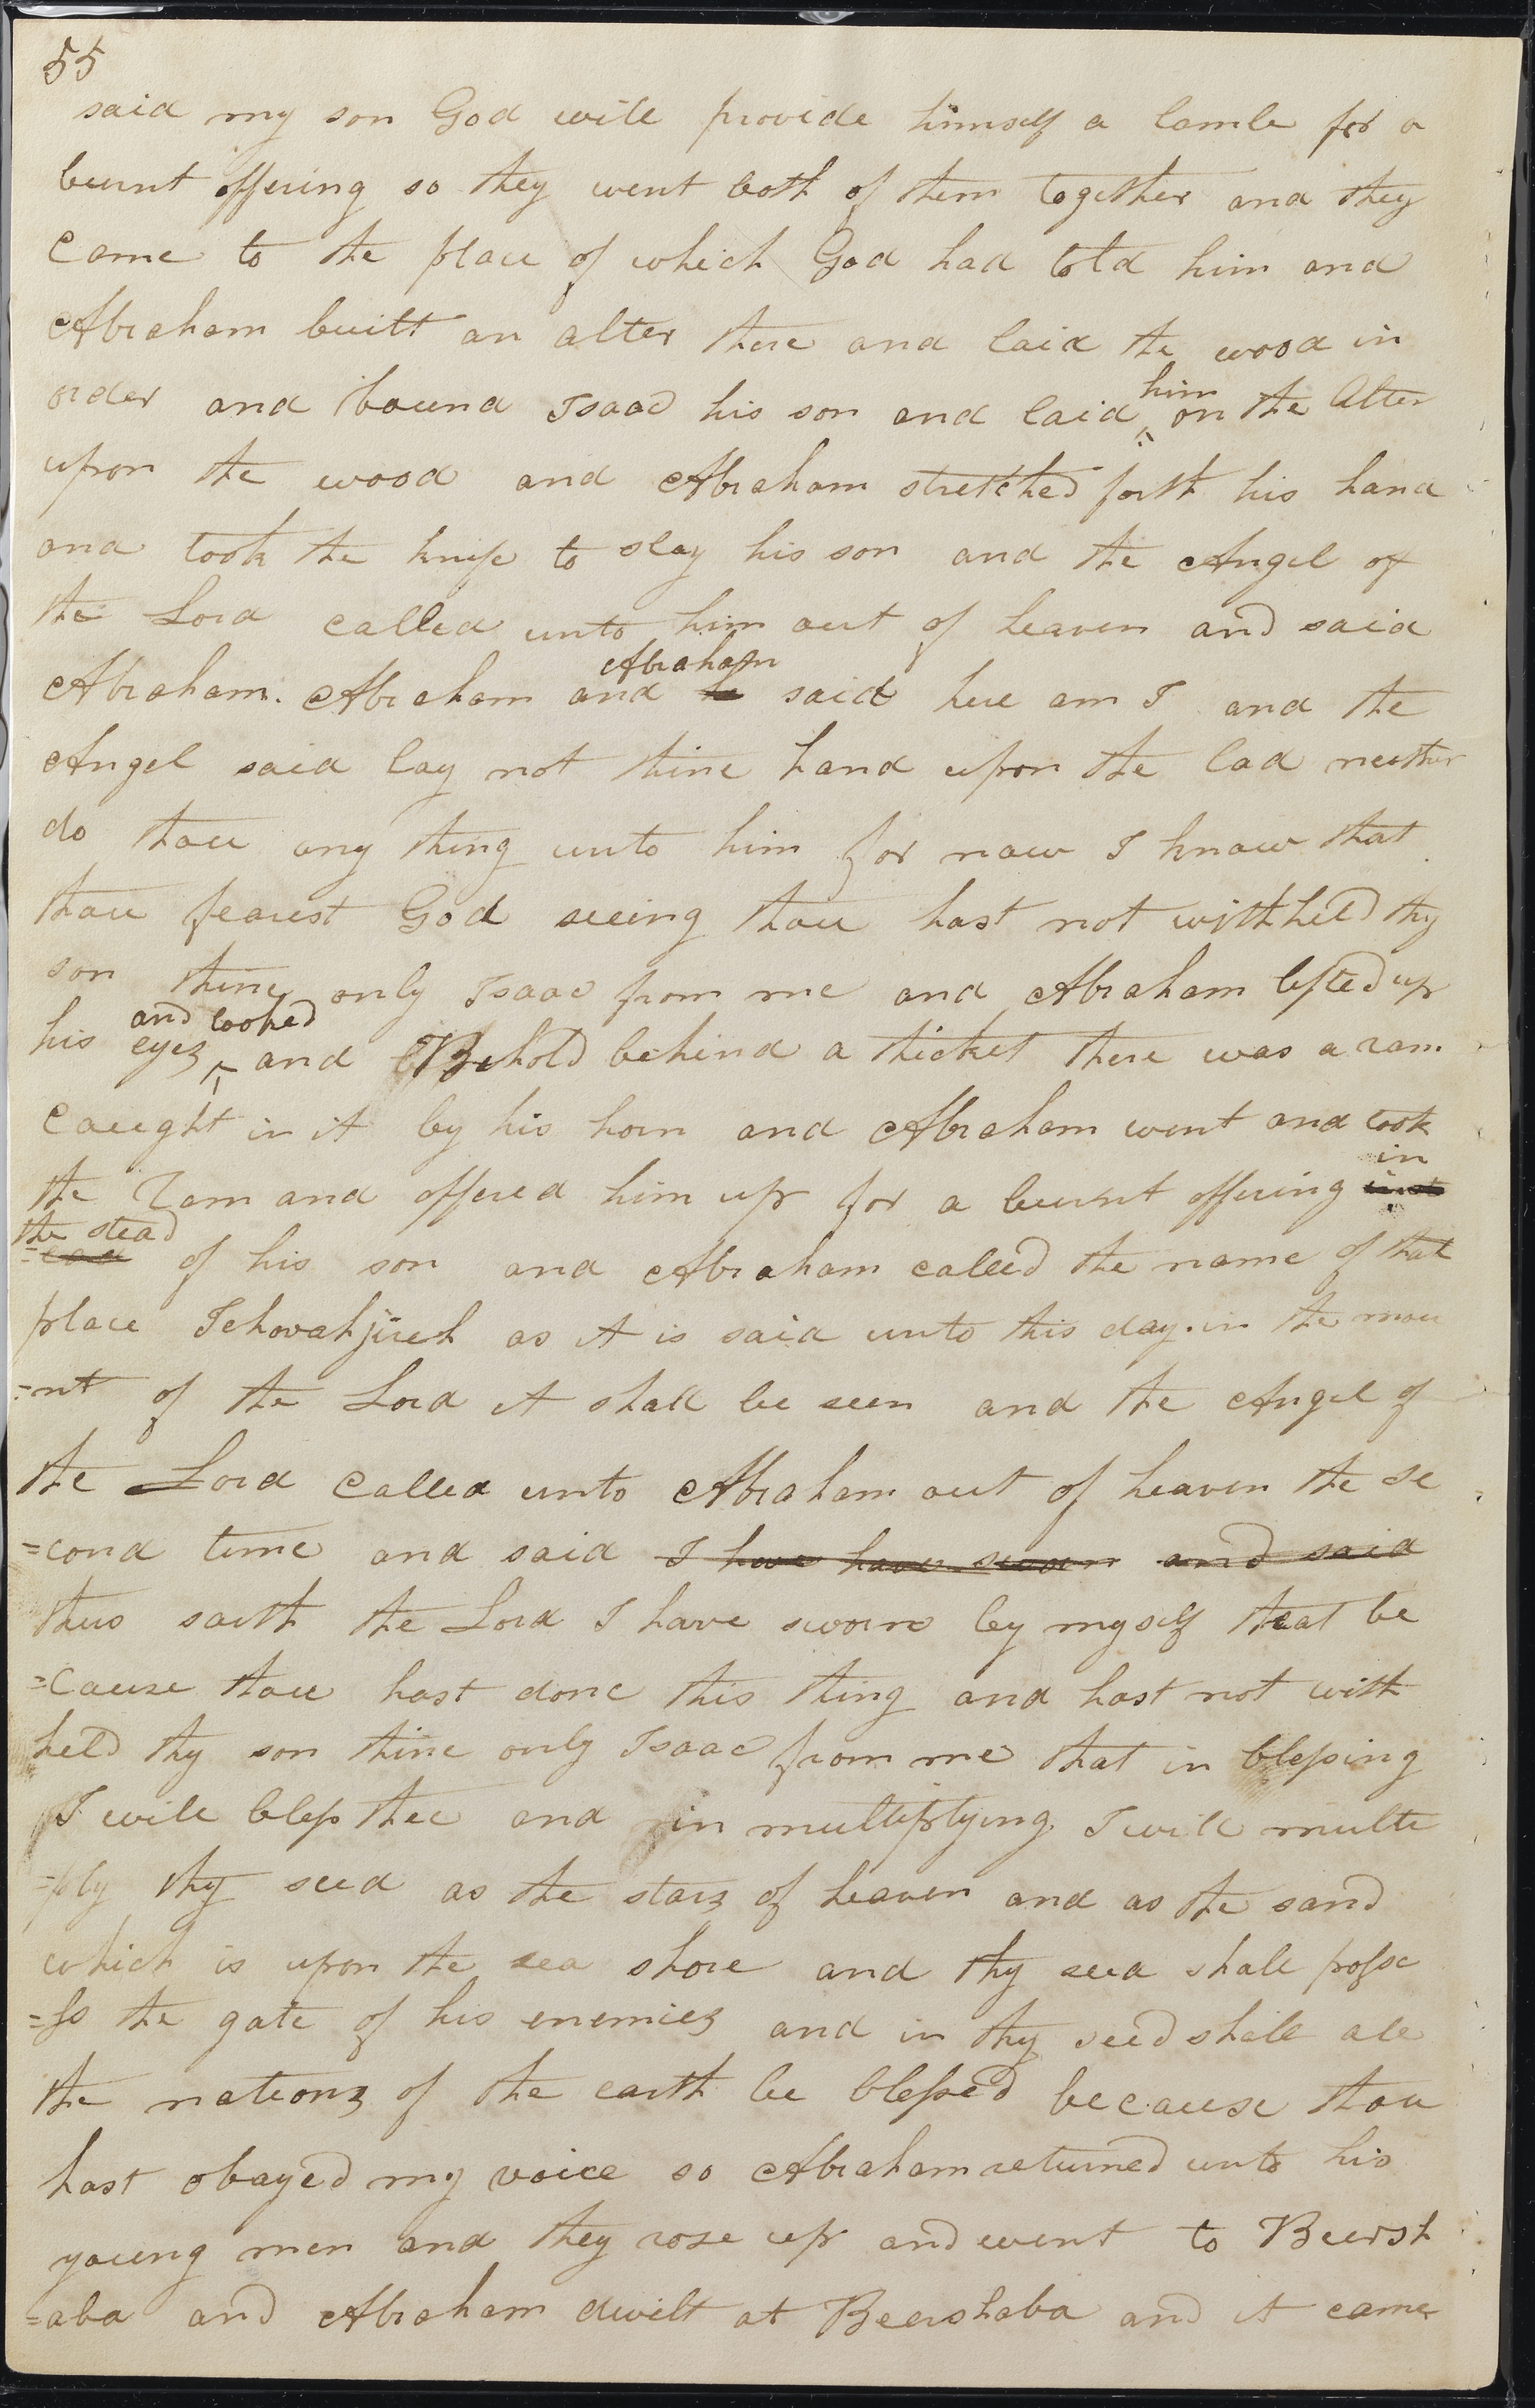 55
said my son God will provide himself a lamb for a
burnt offering so they went both of them together and they
came to the place of which God had told him and
Abraham built an alter there and laid the wood in
him
order and bound Isaac his son and laid on the Alter
upon the wood and Abraham stretched forth his hand
and took the knife to slay his son and the Angel of
the Lord called unto him out of heaven and said
Abraham
Abraham. Abraham and he said here am I and the
Angel said lay not thine hand upon the lad neither
do thou any thing unto him for now I know that
thou fearest God seeing thou hast not withheld thy
son thine only Isaac from me and Abraham lifted up
and looked
his eyes and Behold behind a thicket there was a ram
caught in it by his horn and Abraham went and took
in
the Ram and offered him up for a burnt offering inst
the stead
=ead of his son and Abraham called the name of that
place Jehovahjireh as it is said unto this day. in the mou
=nt of the Lord it shall be seen and the Angel of
the Lord called unto Abraham out of heaven the se
=cond time and said I have have sworn and said
thus saith the Lord I have sworn by myself that be
=cause thou hast done this thing and hast not with
held thy son thine only Isaac from me that in blessing
I will bless thee and in multiplying I will multi
=ply thy seed as the stars of heaven and as the sand
which is upon the sea shore and thy seed shall posse
=ss the gate of his enemies and in thy seed shall all
the nations of the earth be blessed because thou
hast obayed my voice so Abraham returned unto his
young men and they rose up and went to Beersh
=aba and Abraham dwelt at Beershaba and it came